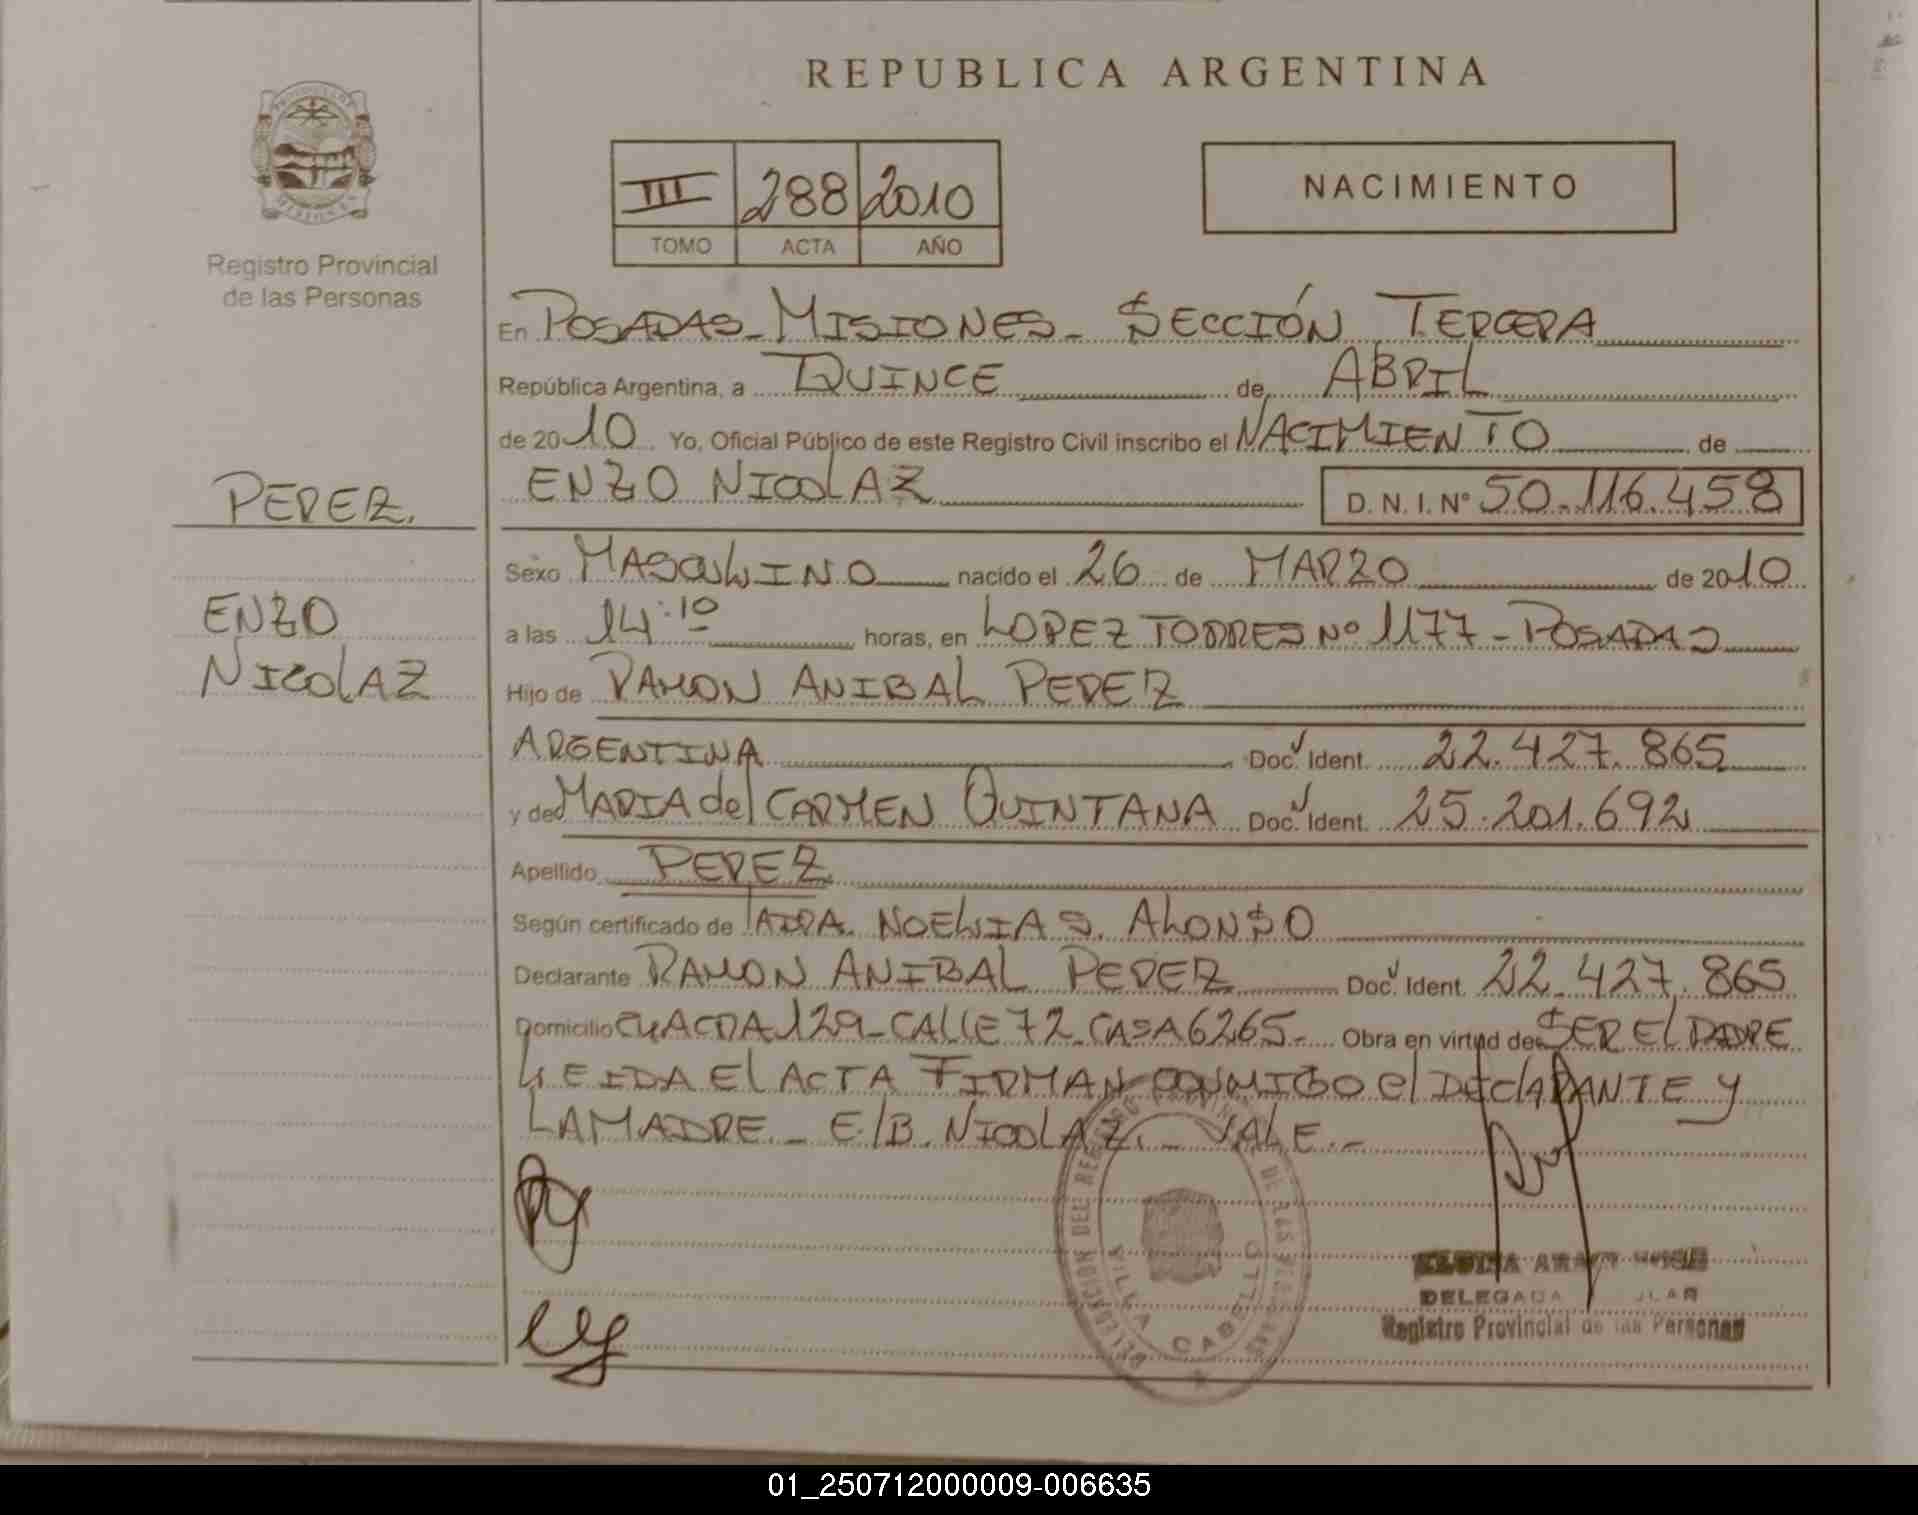 REPUBLICA ARGENTINA
PROVINCIA DE
MISIONES
Registro Provincial
de las Personas
III 288 2010
TOMO ACTA AÑO
NACIMIENTO
En POSADAS - MISIONES - SECCIÓN TERCERA
República Argentina, a QUINCE de ABRIL
de 2010 Yo, Oficial Público de este Registro Civil inscribo el NACIMIENTO de
ENZO NICOLAZ D. N. I. Nº 50.116.458
PEREZ.
ENZO
NICOLAZ
Sexo MASCULINO nacido el 26 de MARZO de 2010
a las 14:10 horas, en LOPEZ TORRES Nº 1177 - POSADAS
Hijo de RAMON ANIBAL PEREZ
ARGENTINA Doc. Ident. 22.427.865
y de MARIA del CARMEN QUINTANA Doc. Ident. 25.201.692
Apellido PEREZ
Según certificado de NOELIA S. ALONSO
Declarante RAMON ANIBAL PEREZ Doc. Ident. 22.427.865
Domicilio CHACRA 129 - CALLE 72 CASA 6265 - Obra en virtud de SER El PADRE
LEIDA El ACTA FIRMAN CONMIGO el DEClARANTE y
LA MADRE - E/B. NICOLAZ. - VALE. -
DELEGACION DEL REGISTRO PROVINCIAL DE LAS PERSONAS
VILLA CABELLO
DELEGADA
Registro Provincial de las Personas
01_250712000009-006635